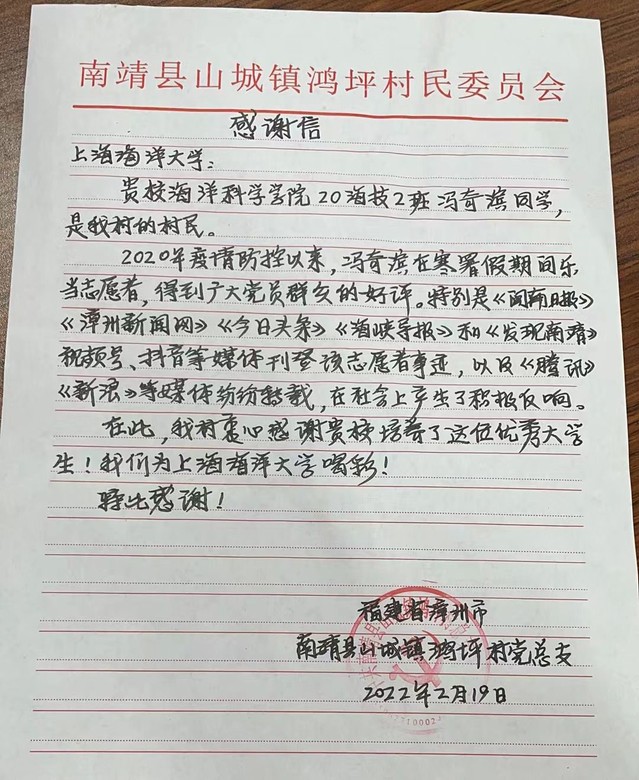 南靖县山城镇鸿坪村民委员会
感谢信
上海海洋大学:
贵校海洋科学学院20海技2班冯奇滨同学,
是我村的村民。
2020年疫情防控以来,冯奇滨在寒暑假期间乐
当志愿者,得到广大党员群众的好评。特别是《闽南日报》
《漳州新闻网》《今日头条》《海峡导报》和《发现南靖》
视频号、抖音等媒体刊登该志愿者事迹,以及《腾讯》
《新浪》等媒体纷纷转载,在社会上产生了积极反响。
在此,我村衷心感谢贵校培养了这位优秀大学
生!我们为上海海洋大学喝彩!
特此感谢!
福建省漳州市
南靖县山城镇鸿坪村党总支
2022年2月19日